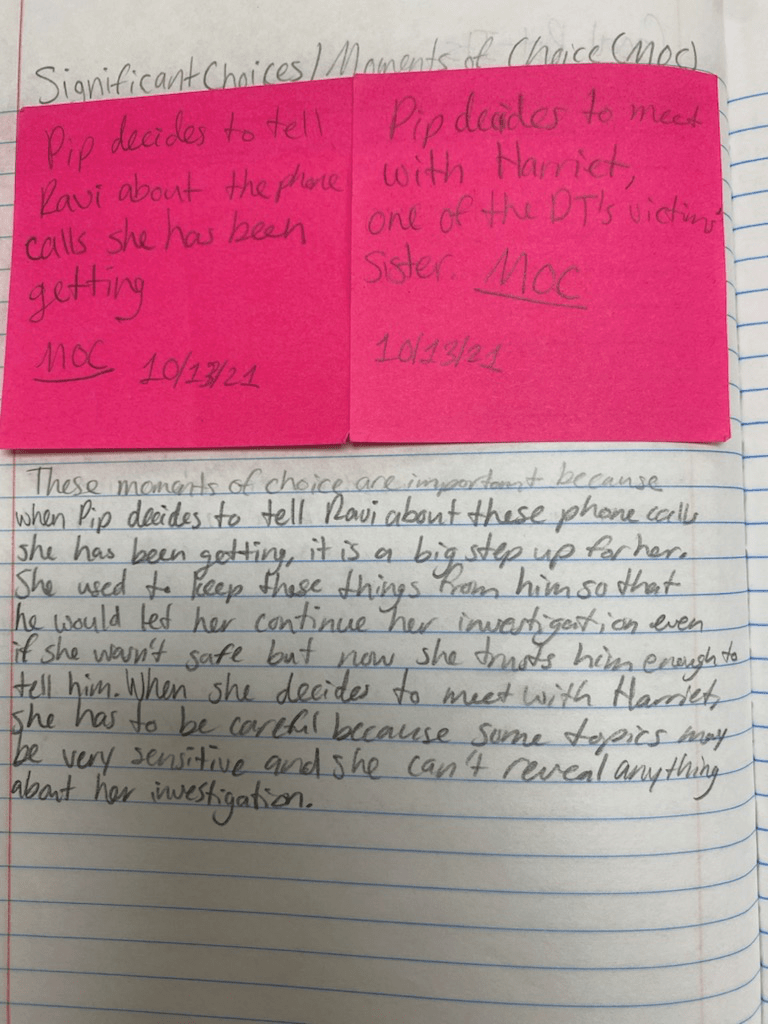 Significant Choices/Moments of Choice (MOC)
Pip decides to tell
Ravi about the phone
calls she has been
getting
MOC 10/13/21
Pip decides to meet
with Harriet,
one of the DT's victims'
sister. MOC
10/13/21
These moments of choice are important because
when Pip decides to tell Ravi about these phone calls
she has been getting, it is a big step up for her.
She used to keep these things from him so that
he would let her continue her investigation even
if she wasn't safe but now she trusts him enough to
tell him. When she decides to meet with Harriet,
she has to be careful because some topics may
be very sensitive and she can't reveal anything
about her investigation.